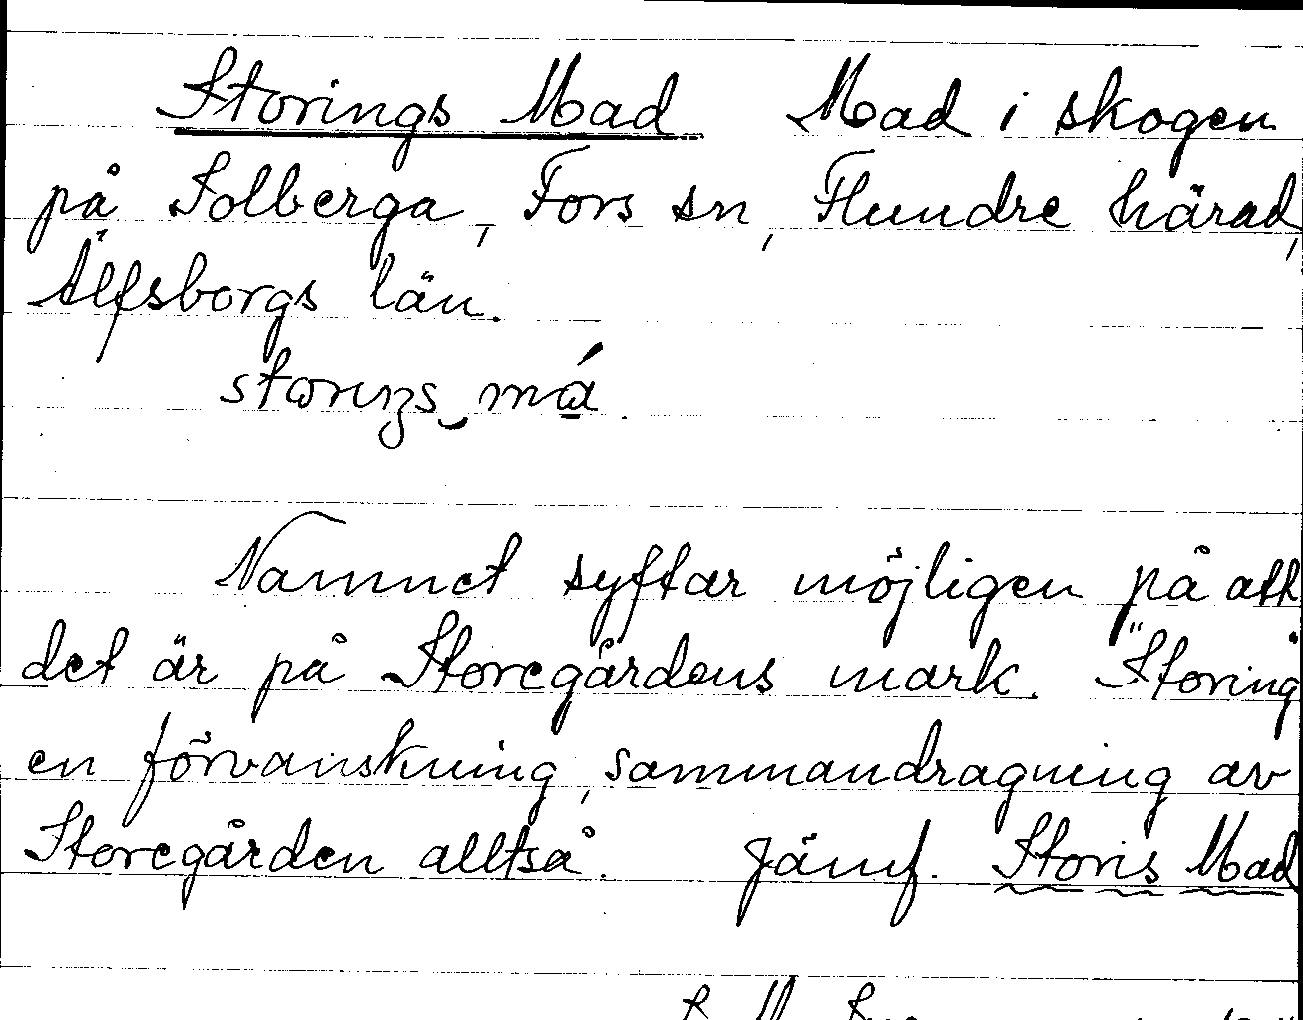 Storings Mad Mad i skogen
på Solberga, Fors sn, Flundre härad,
Älfsborgs län.
Namnet syftar möjligen på att
det är på Storegårdens mark. "Storing"
en förvanskning, sammandragning av
Storegården alltså. Jämf. Storis Mad